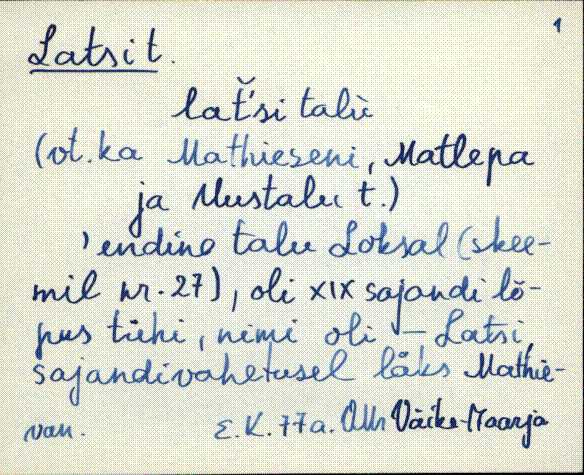 1
Latsi t.
lat̆'si talù
(vt. ka Mathieseni, Matlepa
ja Mustalu t.)
'endine talu Loksal (skee-
mil nr. 27), oli XIX sajandi lõ-
pus tühi, nimi oli – Latsi,
sajandivahetusel läks Mathie-
van. E.K. 77a. Väike-Maarja